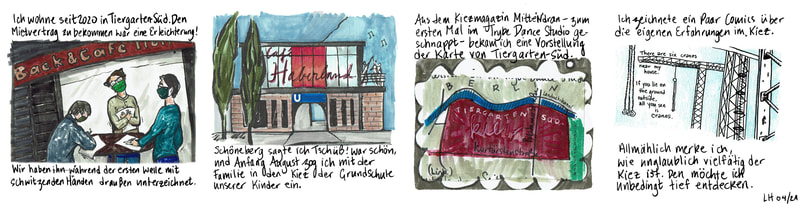 Ich wohne seit 2020 in Tiergarten-Süd. Den
Mietvertrag zu bekommen war eine Erleichterung!
Back & Café
Wir haben ihn während der ersten Welle mit
schwitzenden Händen draußen unterzeichnet.
Café
Haberland
U
Schöneberg sagte ich Tschüß! war schön,
und Anfang August zog ich mit der
Familie in den Kiez der Grundschule
unserer Kinder ein.
Aus dem Kiezmagazin MitteNdran - zum
ersten Mal im Type Dance Studio ge-
schnappt - bekam ich eine Vorstellung
der Karte von Tiergarten-Süd.
BERLIN
TIERGARTEN SÜD
Kurfürstenstraße
Ich zeichnete ein Paar Comics über
die eigenen Erfahrungen im Kiez.
There are six cranes
near my
house.
If you lie
on the
ground
outside,
all you
see is
cranes.
Allmählich merke ich,
wie unglaublich vielfältig der
Kiez ist. Den möchte ich
unbedingt tief entdecken.
LH 04/21